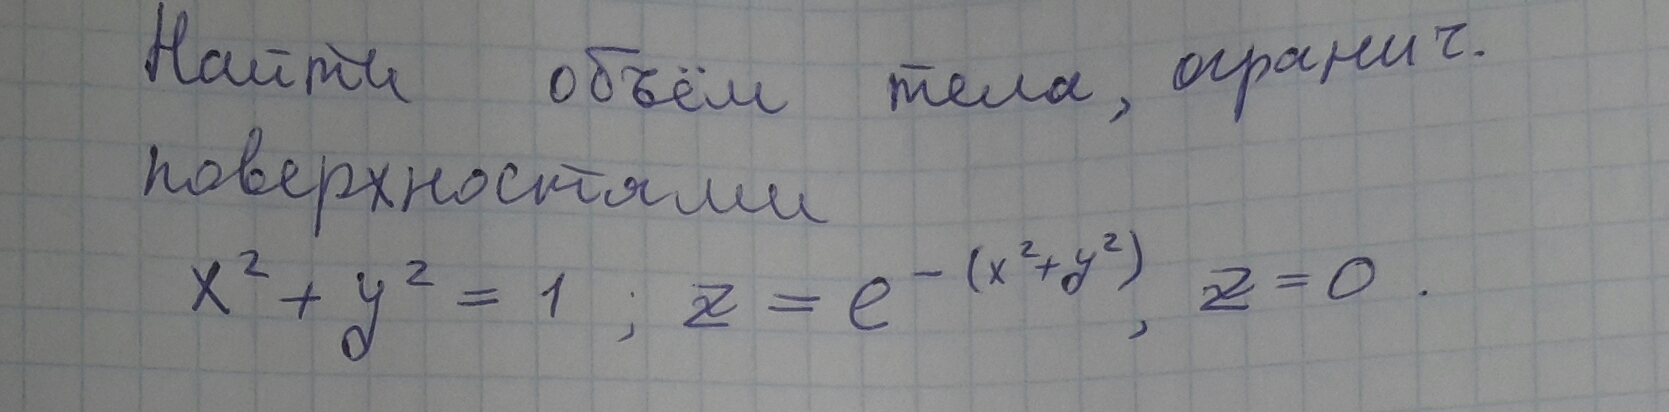 Найти объём тела, огранич.
поверхностями
x² + y² = 1 ; z = e^{-(x²+y²)}, z = 0 .